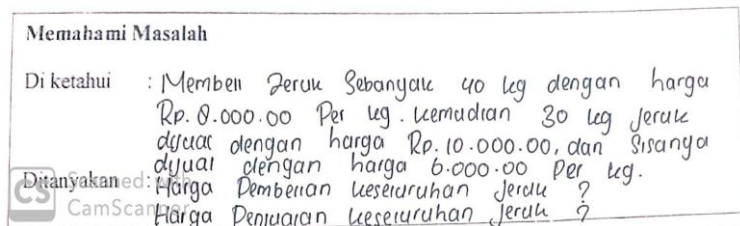 Memahami Masalah
Di ketahui : Membeli Jeruk Sebanyak 40 kg dengan harga
Rp. 8.000.00 Per kg. kemudian 30 kg Jeruk
dijual dengan harga Rp. 10.000.00, dan Sisanya
dijual dengan harga 6.000.00 Per kg.
Ditanyakan : Harga Pembelian keseluruhan Jeruk ?
Harga Penjualan keseluruhan Jeruk ?
CS Scanned with
CamScanner